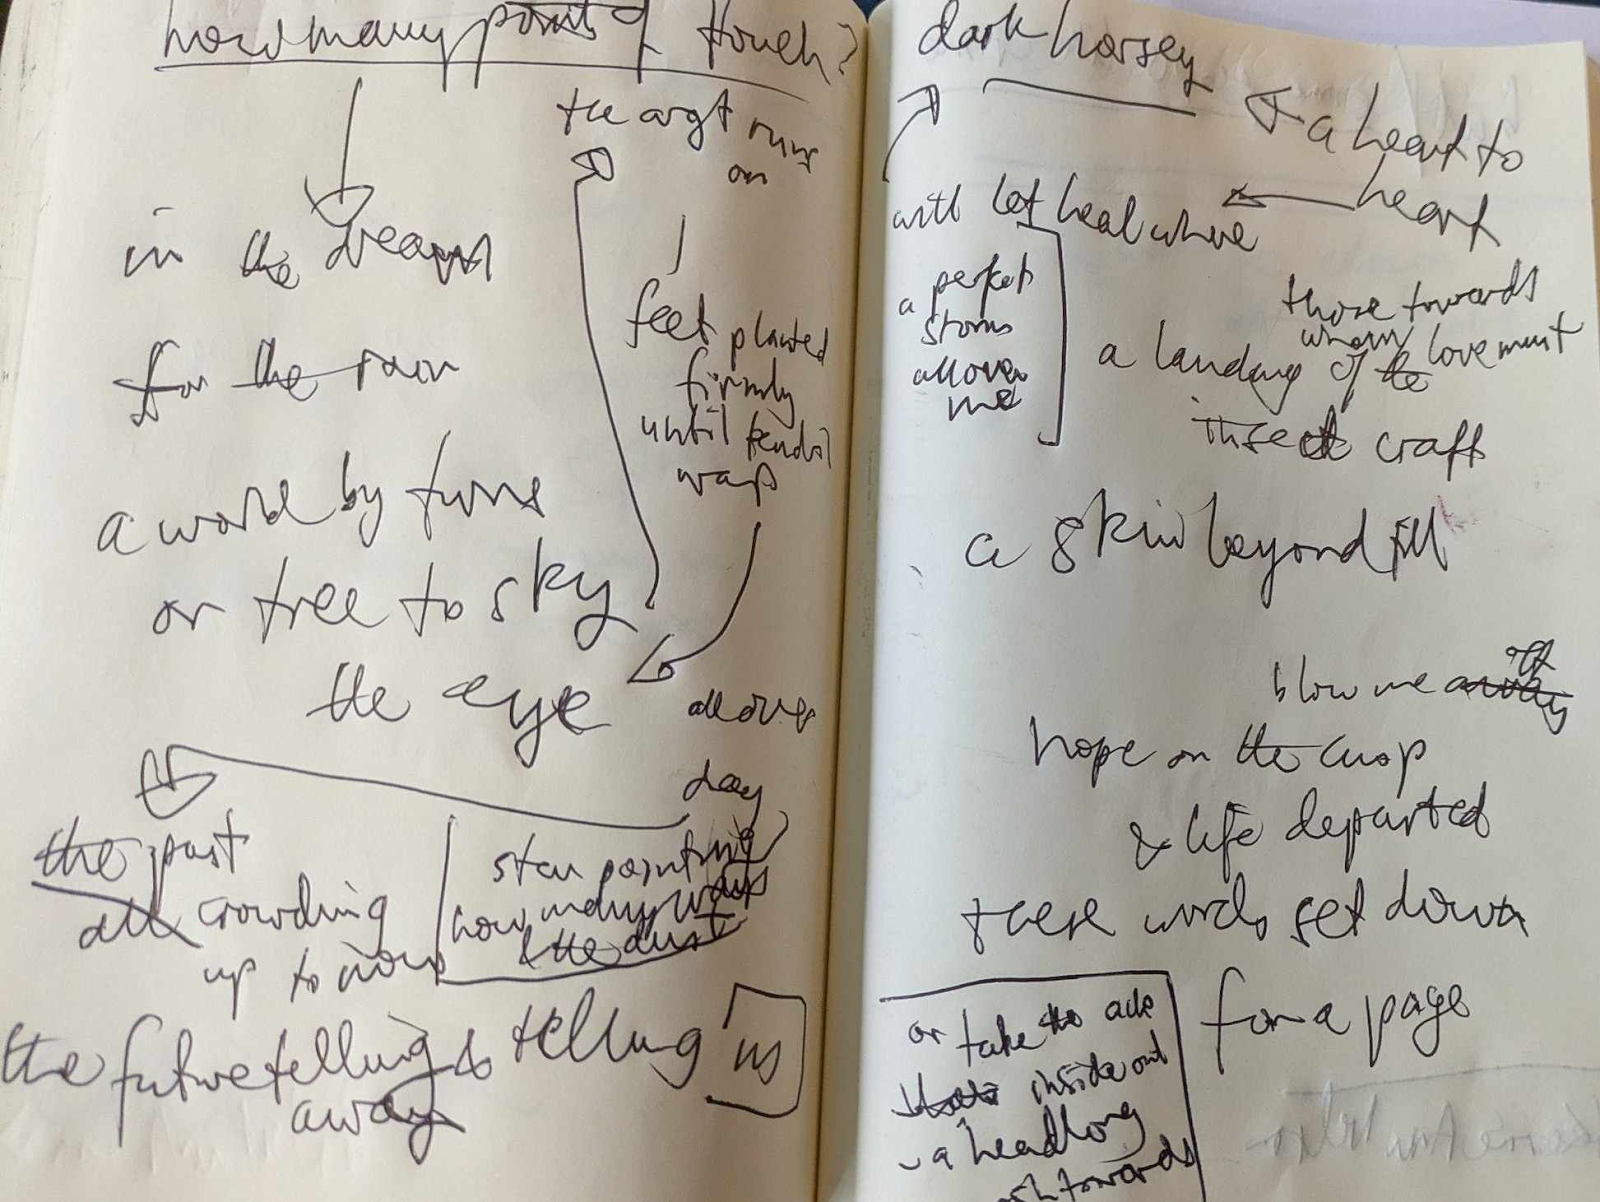 how many points of touch?
the argt runs
on
in the dream
for the rain
feet planted
firmly
until tendril
wraps
a world by turns
or tree to sky
the eye
all over
day
the past
all crowding
up to now
star pointing
how many ways
& the dust
the future telling & telling us
away
dark horsey
& a heart to
heart
with let heal where
a perfect
storm
all over
me
those towards
whom
a landing of the lovement
insect craft
a skin beyond ill
off
blow me away
hope on the cusp
& life departed
these words set down
for a page
or take the
inside out
a headlong
towards